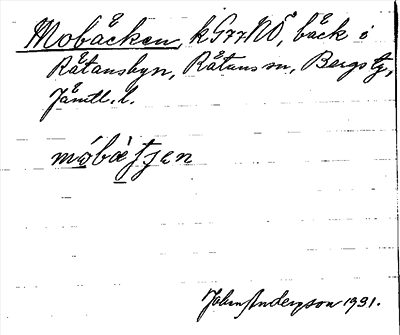 Mobäcken, k G77 NÖ, bäck i
Råtansbyn, Råtans sn, Bergs tg,
Jämtl. l.
móbàtjen
John Anderson 1931.